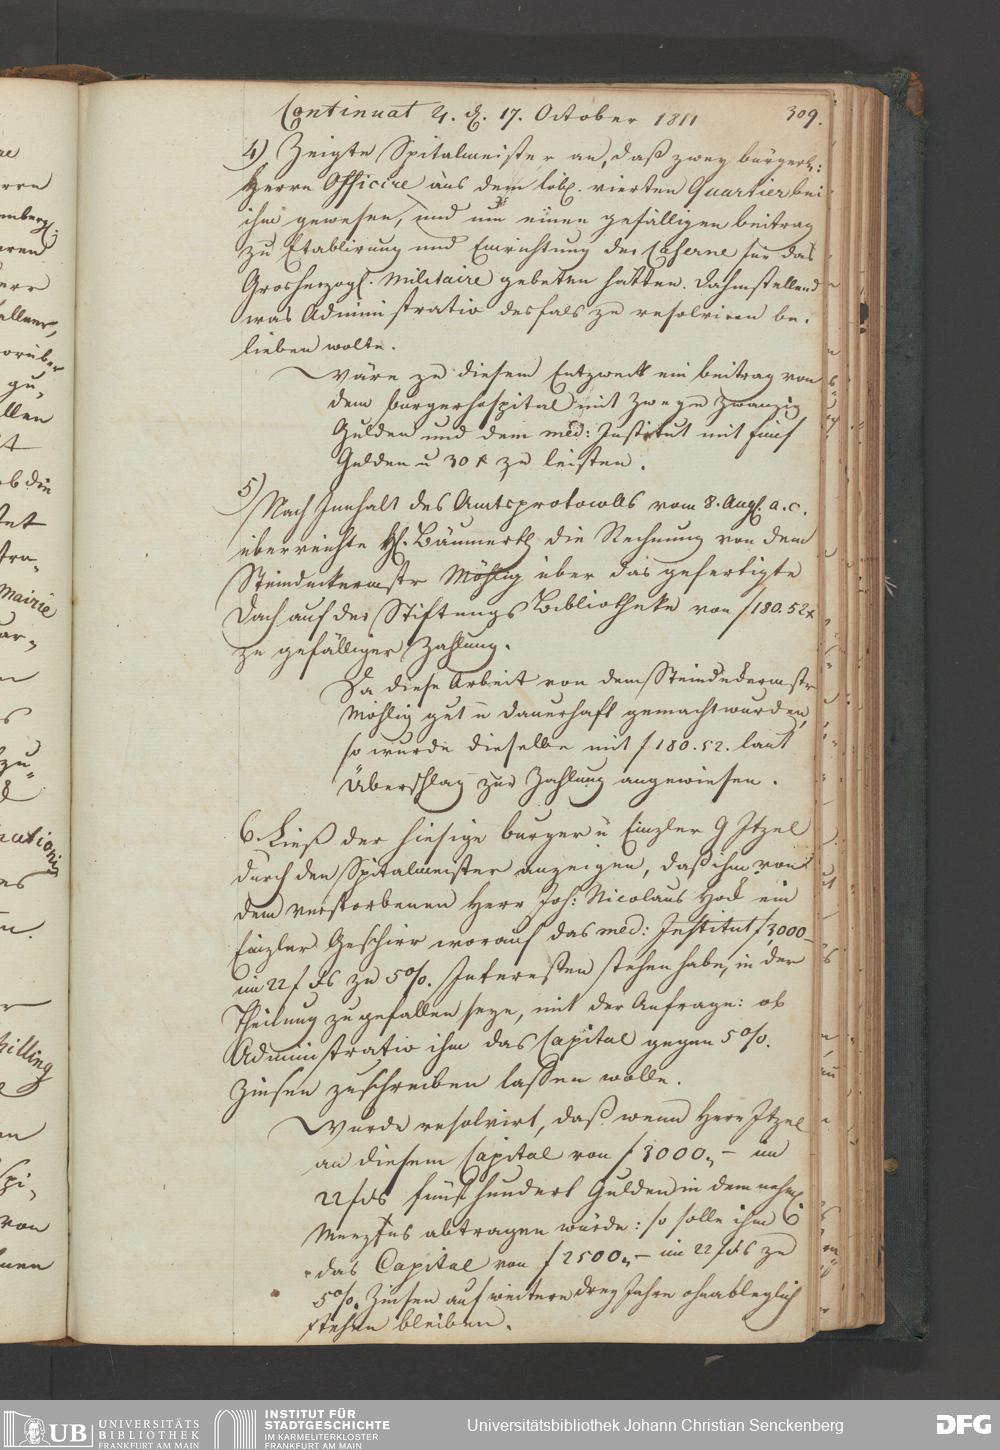 Continuat d. 17. October 1811
309.
4) Zeigte Spitalmeister an, daß zwey bürgerl:
Herrn Officire aus dem löbl. vierten Quartier bei
ihm gewesen, und um einen gefälligen beitrag
zu Etablirung und Einrichtung der Caserne für das
Grosherzogl. Militaire gebeten hätten. Dahinstellend
was Administratio desfals zu resolviren be-
lieben wolte.
Wäre zu diesem Entzweck ein beitrag von
dem burgerhospital mit zwey u zwanzig
Gulden und dem med: Institut mit fünf
Gulden u 30 x zu leisten.
5) Nach Innhalt des Amtsprotocolls vom 8. Aug. a. c.
überreichte H. Bäumerth die Rechnung von dem
Steindeckermstr Möhlig über das gefertigte
Dach auf der Stiftungs Bibliotheke von f 180.52 x
zu gefälliger Zahlung.
Da diese Arbeit von dem Steindeckermstr
Möhlig gut u dauerhaft gemacht wurden,
so wurde dieselbe mit f 180.52. laut
Überschlag zur Zahlung angewiesen.
6. Ließ der hiesige burger u Einzler Itzel
durch den Spitalmeister anzeigen, daß ihm von
dem verstorbenen Herr Joh: Nicolaus Hock ein
Einzler Geschirr worauf das med: Institut f 3000 –
im 22 f fs zu 5%. Interessen stehen habe, in der
Theilung zugefallen seye, mit der Anfrage: ob
Administratio ihm das Capital gegen 5%.
Zinsen zuschreiben lassen wolle.
Wurde resolvirt, daß wenn Herr Itzel
an diesem Capital von f 3000,, – im
22 f fs fünf hundert Gulden in dem
abtragen würde: so solle ihm
das Capital von f 2500,, – im 22 f fs zu
5%. Zinsen auf weitere drey Jahre ohnableglich
stehen bleiben.
UB UNIVERSITÄTS
BIBLIOTHEK
FRANKFURT AM MAIN
INSTITUT FÜR
STADTGESCHICHTE
IM KARMELITERKLOSTER
FRANKFURT AM MAIN
Universitätsbibliothek Johann Christian Senckenberg
DFG